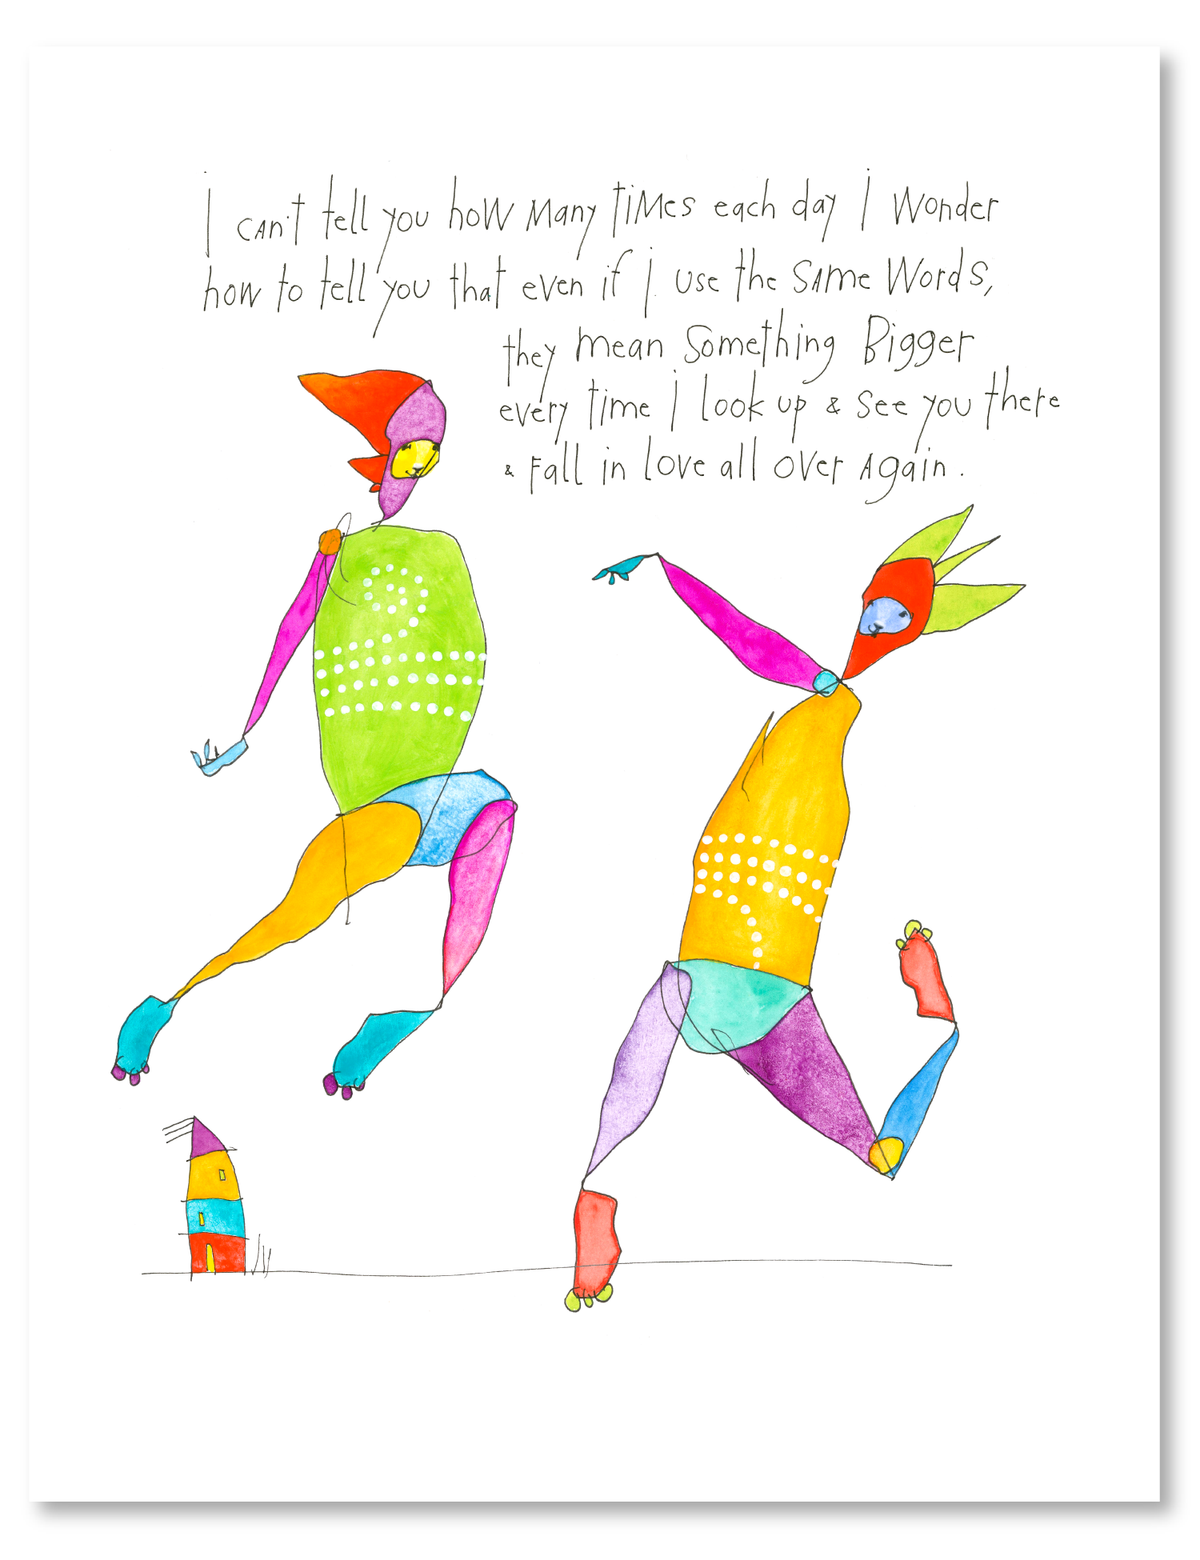 I can't tell you how many times each day I wonder
how to tell you that even if I use the same words,
they mean something Bigger
every time I look up & see you there
& fall in love all over again.